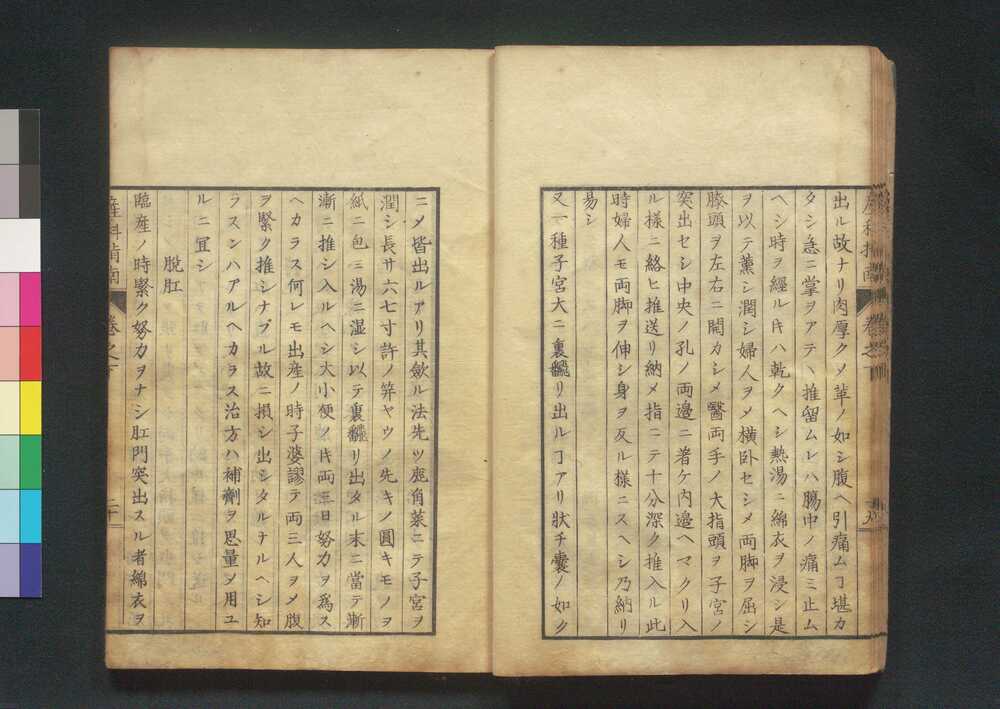 産科指南 巻之下
出ル故ナリ肉厚クメ革ノ如シ腹ヘ引痛ムヿ堪カ
タシ急ニ掌ヲアテヽ推留ムレハ腸中ノ痛ミ止ム
ヘシ時ヲ經ルキハ乾クヘシ熱湯ニ綿衣ヲ浸シ是
ヲ以テ薫シ潤シ婦人ヲメ横卧セシメ両脚ヲ屈シ
膝頭ヲ左右ニ開カシメ醫両手ノ大指頭ヲ子宮ノ
突出セシ中央ノ孔ノ両邉ニ著ケ内邉ヘマクリ入
ル様ニ絡ヒ推送リ納メ指ニテ十分深ク推入ル此
時婦人モ両脚ヲ伸シ身ヲ反ル様ニスヘシ乃納リ
易シ
又一種子宮大ニ裏飜リ出ルヿアリ状チ嚢ノ如ク
ニメ皆出ルアリ其歛ル法先ツ鹿角菜ニテ子宮ヲ
潤シ長サ六七寸許ノ笄ヤウノ先キノ圓キモノヲ
紙ニ包ミ湯ニ湿シ以テ裏飜リ出タル末ニ當テ漸
漸ニ推シ入ルヘシ大小便ノキ両三日努力ヲ爲ス
ヘカラス何レモ出産ノ時子婆謬テ両三人ヲメ腹
ヲ緊ク推シナブル故ニ損シ出シタルナルヘシ知
ラスンハアルヘカラス治方ハ補劑ヲ思量シ用ユ
ルニ宜シ
脱肛
臨産ノ時緊ク努力ヲナシ肛門突出スル者綿衣ヲ
産科指南 巻之下 二十